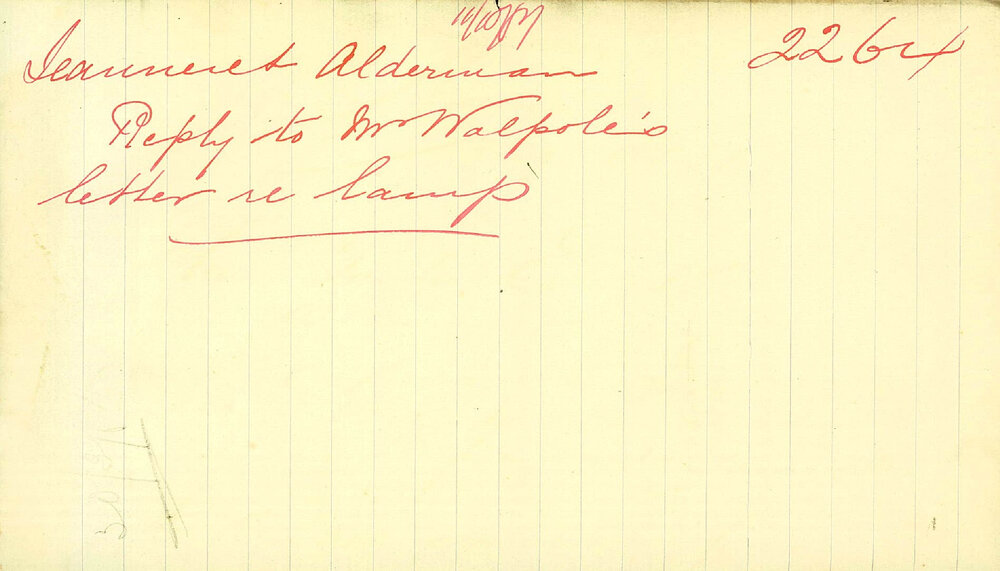 Jeanneret Alderman
2264
Reply to Mr Walpole's
letter re lamp